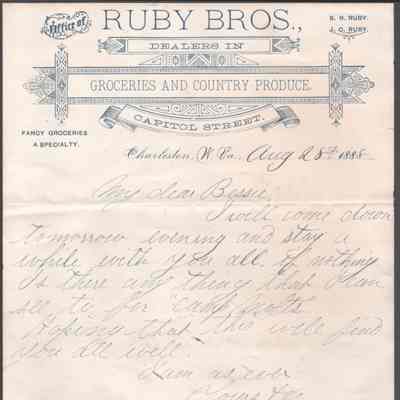 Office of
RUBY BROS.,
S. H. RUBY.
J. C. RUBY.
DEALERS IN
GROCERIES AND COUNTRY PRODUCE.
CAPITOL STREET.
FANCY GROCERIES
A SPECIALTY.
Charleston, W. Va., Aug 28th 1888
My dear Bessie,
I will come down
tomorrow evening and stay a
while with you all if nothing
Is there any thing that I can
see to for "camp
Hoping that this will find
you all well.
I am as ever
Yours &c